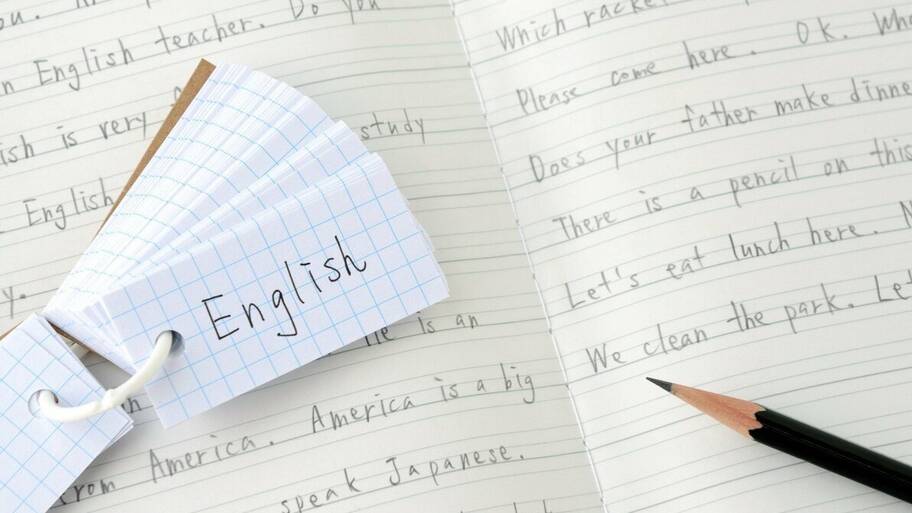 English teacher. Do you
English is very
study
English
is an
America is a big
from America.
speak Japanese.
English
Which racket
Please come here. OK.
Does your father make dinner
There is a pencil on this
Let's eat lunch here.
We clean the park. Let